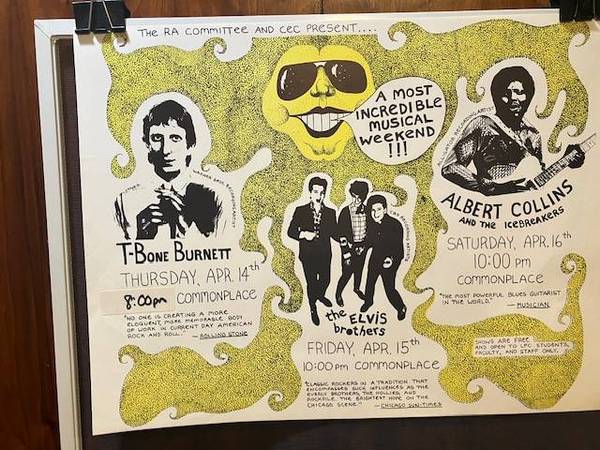 The RA Committee and CEC Present....
A MOST
INCREDIBLE
MUSICAL
WEEKEND
!!!
WARNER BROS. RECORDING ARTIST
T-Bone Burnett
THURSDAY, APR. 14th
8:00pm COMMONPLACE
"NO ONE IS CREATING A MORE
ELOQUENT, MORE MEMORABLE BODY
OF WORK IN CURRENT DAY AMERICAN
ROCK AND ROLL." — ROLLING STONE
CBS RECORDING ARTISTS
the ELVIS
brothers
FRIDAY, APR. 15th
10:00 pm COMMONPLACE
"CLASSIC ROCKERS IN A TRADITION THAT
ENCOMPASSES SUCH INFLUENCES AS THE
EVERLY BROTHERS, THE HOLLIES, AND
ROCKPILE. THE BRIGHTEST HOPE ON THE
CHICAGO SCENE." — CHICAGO SUN-TIMES
ALLIGATOR RECORDING ARTIST
ALBERT COLLINS
AND THE ICEBREAKERS
SATURDAY, APR. 16th
10:00 pm
COMMONPLACE
"THE MOST POWERFUL BLUES GUITARIST
IN THE WORLD." — MUSICIAN
SHOWS ARE FREE
AND OPEN TO LFC STUDENTS,
FACULTY, AND STAFF ONLY.